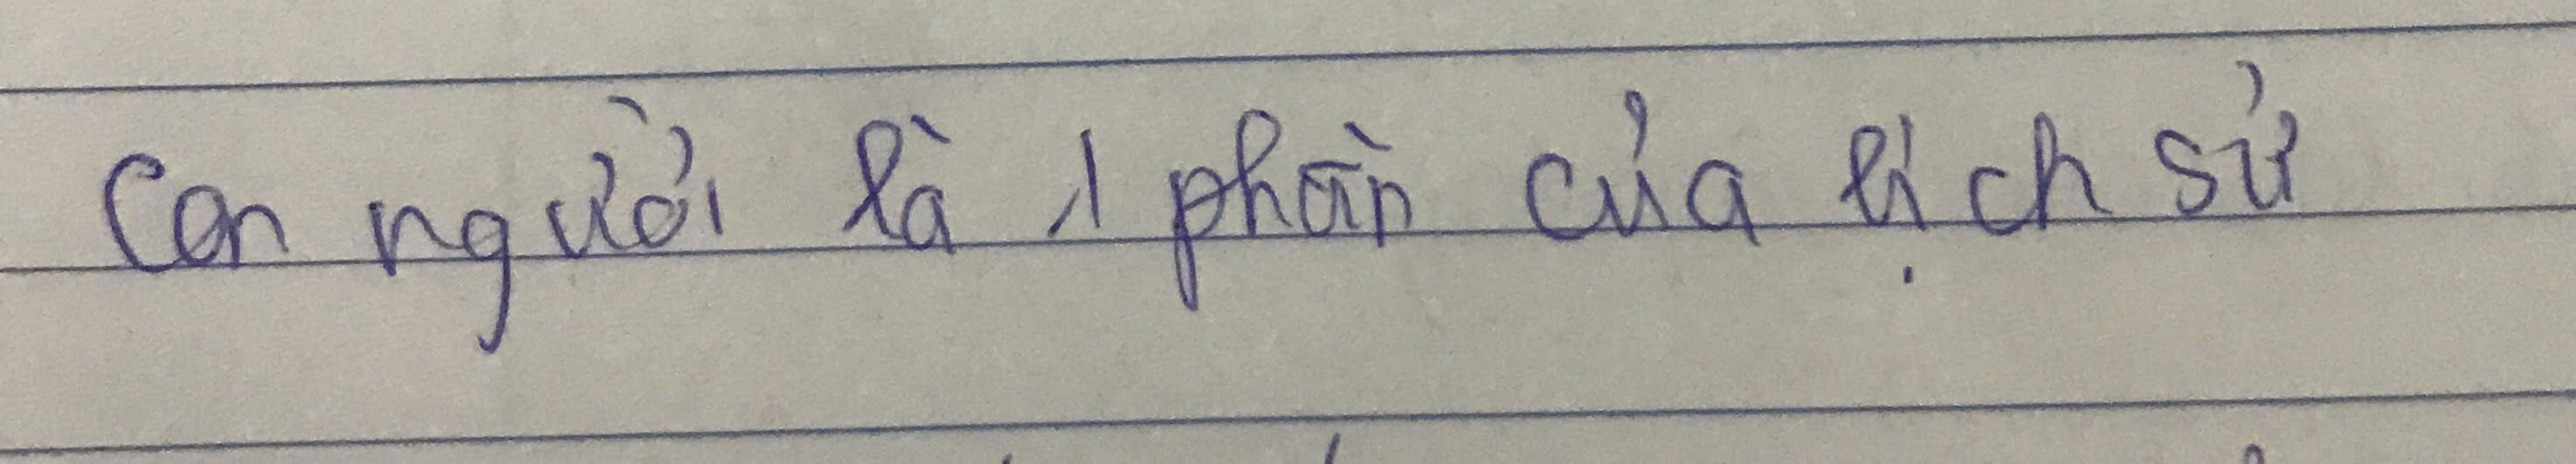 Con người là 1 phần của lịch sử